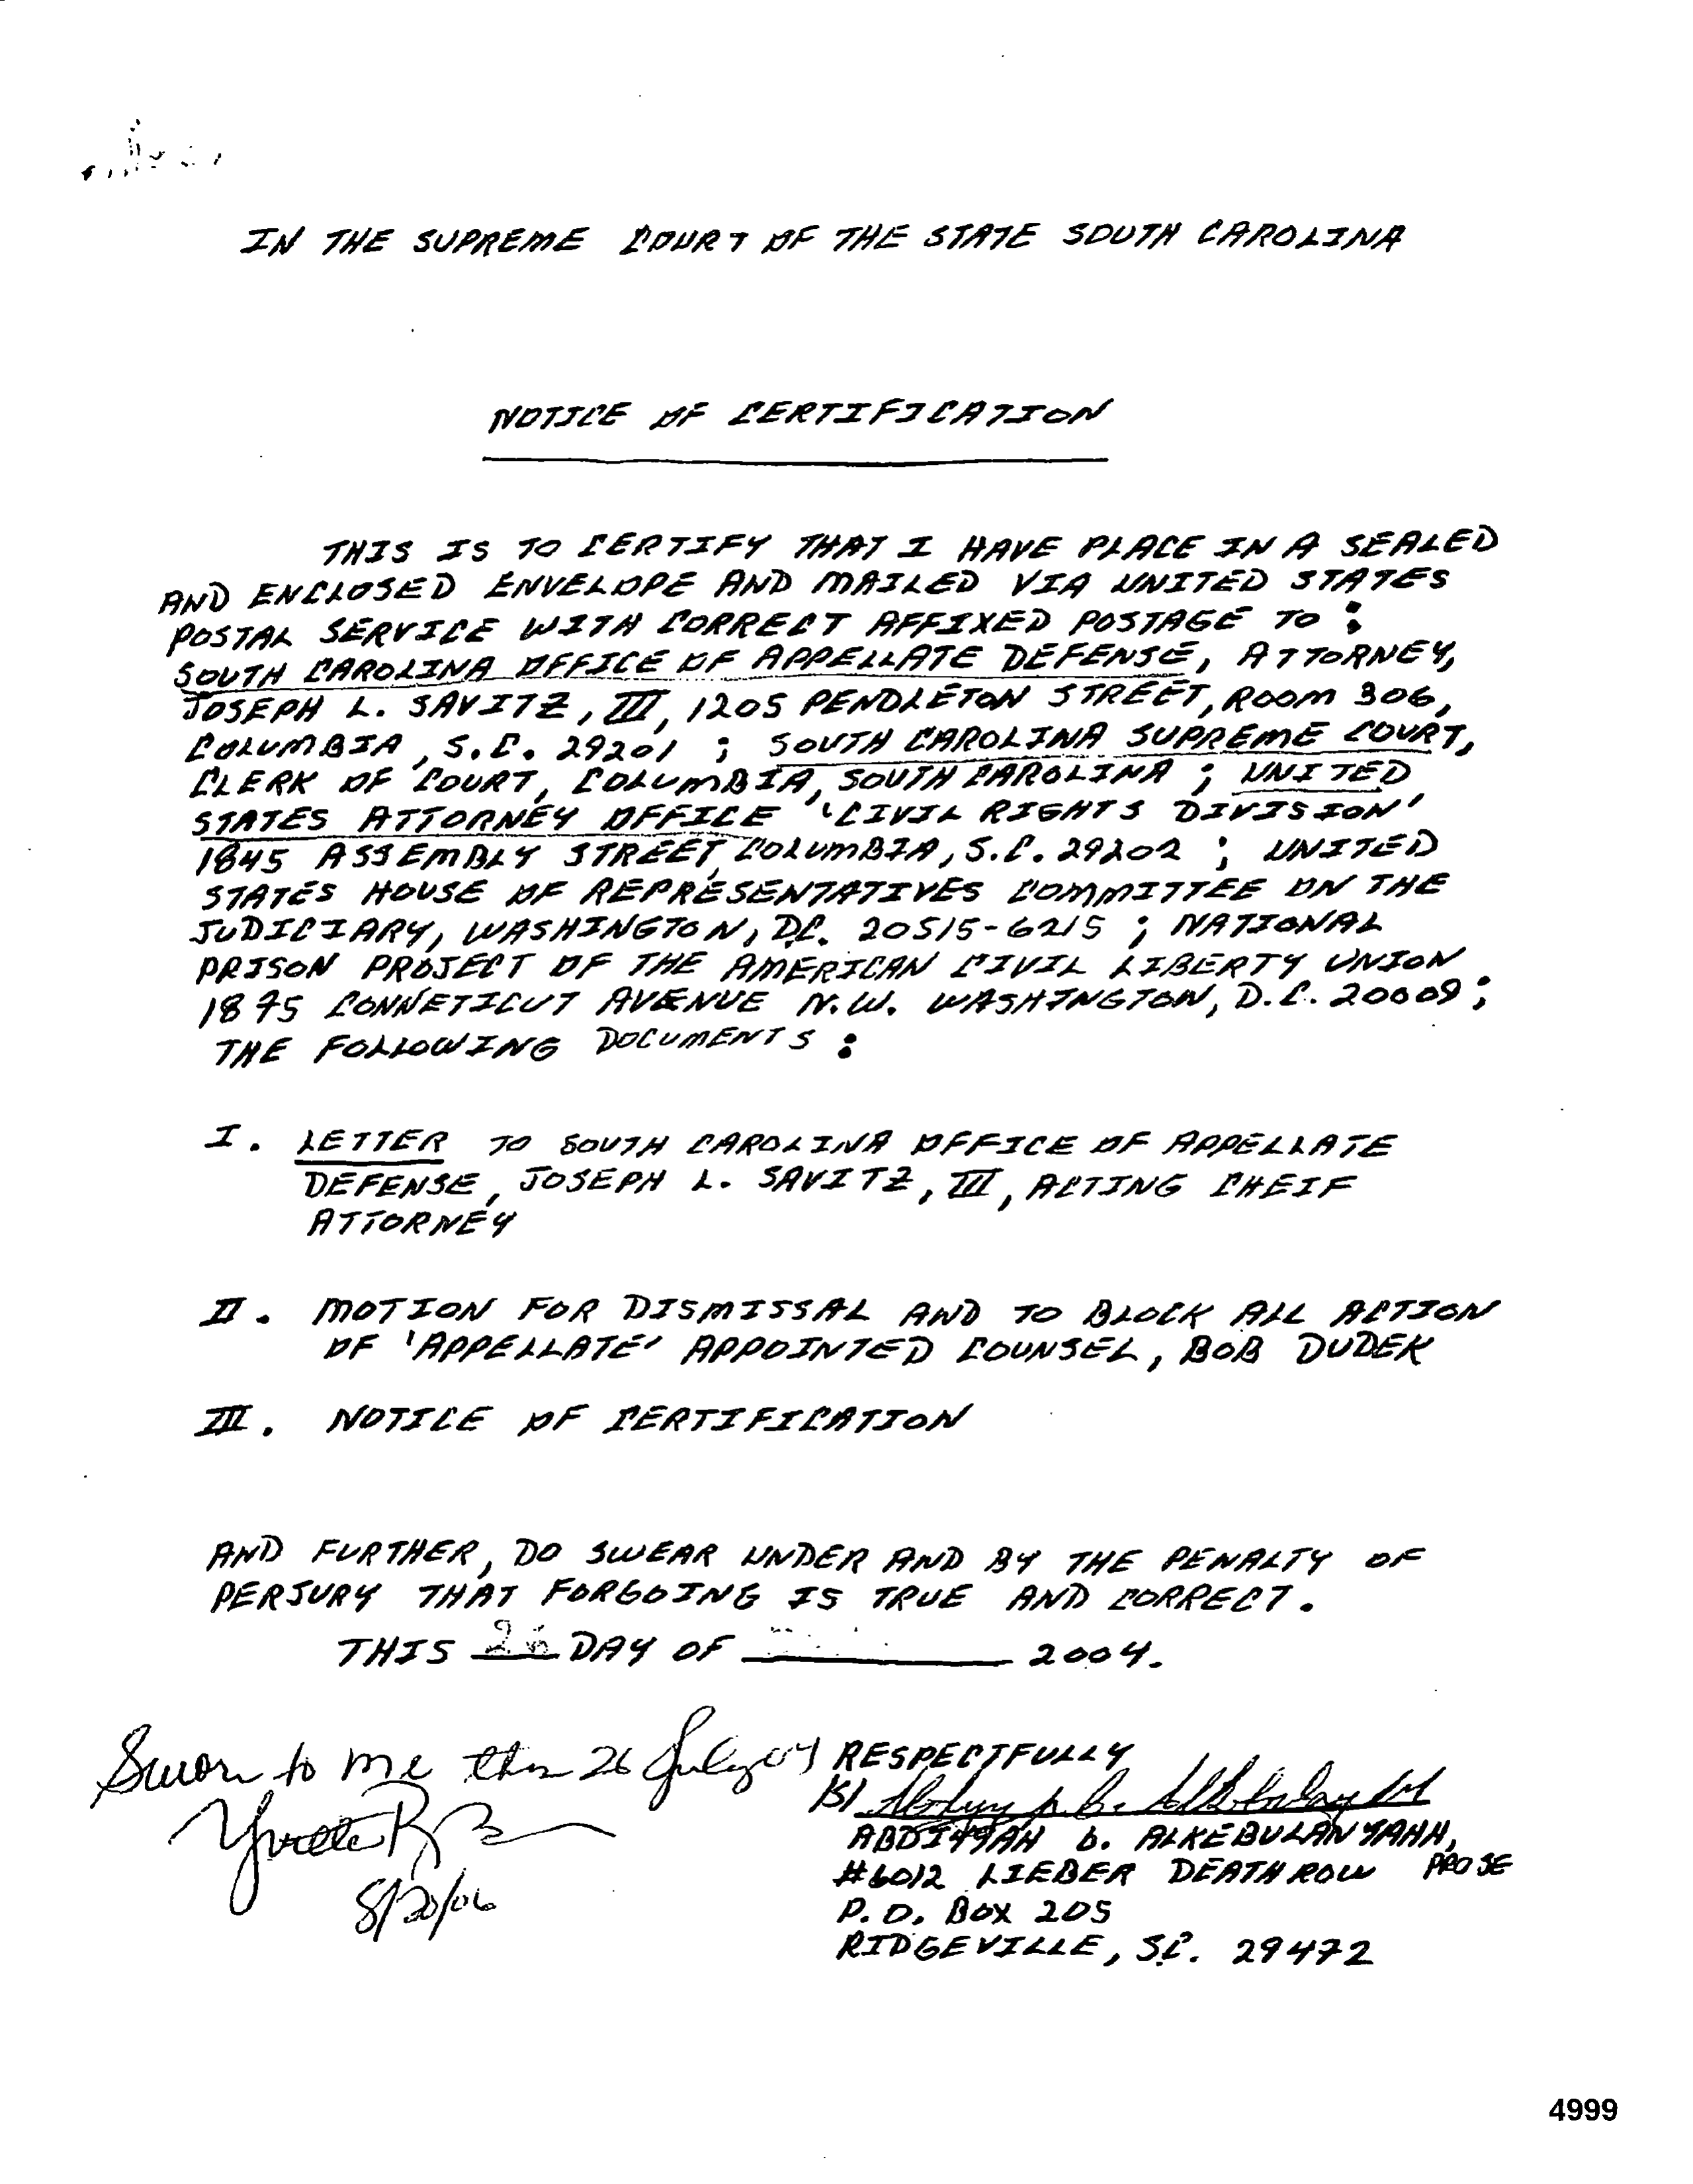 IN THE SUPREME COURT OF THE STATE SOUTH CAROLINA
NOTICE OF CERTIFICATION
THIS IS TO CERTIFY THAT I HAVE PLACE IN A SEALED
AND ENCLOSED ENVELOPE AND MAILED VIA UNITED STATES
POSTAL SERVICE WITH CORRECT AFFIXED POSTAGE TO :
SOUTH CAROLINA OFFICE OF APPELLATE DEFENSE, ATTORNEY,
JOSEPH L. SAVITZ, III, 1205 PENDLETON STREET, ROOM 306,
COLUMBIA, S.C. 29201 ; SOUTH CAROLINA SUPREME COURT,
CLERK OF COURT, COLUMBIA, SOUTH CAROLINA ; UNITED
STATES ATTORNEY OFFICE 'CIVIL RIGHTS DIVISION'
1845 ASSEMBLY STREET, COLUMBIA, S.C. 29202 ; UNITED
STATES HOUSE OF REPRESENTATIVES COMMITTEE ON THE
JUDICIARY, WASHINGTON, D.C. 20515-6215 ; NATIONAL
PRISON PROJECT OF THE AMERICAN CIVIL LIBERTY UNION
1875 CONNETICUT AVENUE N.W. WASHINGTON, D.C. 20009 ;
THE FOLLOWING DOCUMENTS :
I. LETTER TO SOUTH CAROLINA OFFICE OF APPELLATE
DEFENSE, JOSEPH L. SAVITZ, III, ACTING CHEIF
ATTORNEY
II. MOTION FOR DISMISSAL AND TO BLOCK ALL ACTION
OF 'APPELLATE' APPOINTED COUNSEL, BOB DUDEK
III. NOTICE OF CERTIFICATION
AND FURTHER, DO SWEAR UNDER AND BY THE PENALTY OF
PERJURY THAT FORGOING IS TRUE AND CORRECT.
THIS 26 DAY OF 2004.
Sworn to me this 26 July 04
Yvette
8/20/06
RESPECTFULLY
/S/
ABDIYYAH b. ALKEBULANYAHH,
PROSE
#6012 LIEBER DEATH ROW
P.O. BOX 205
RIDGEVILLE, S.C. 29472
4999